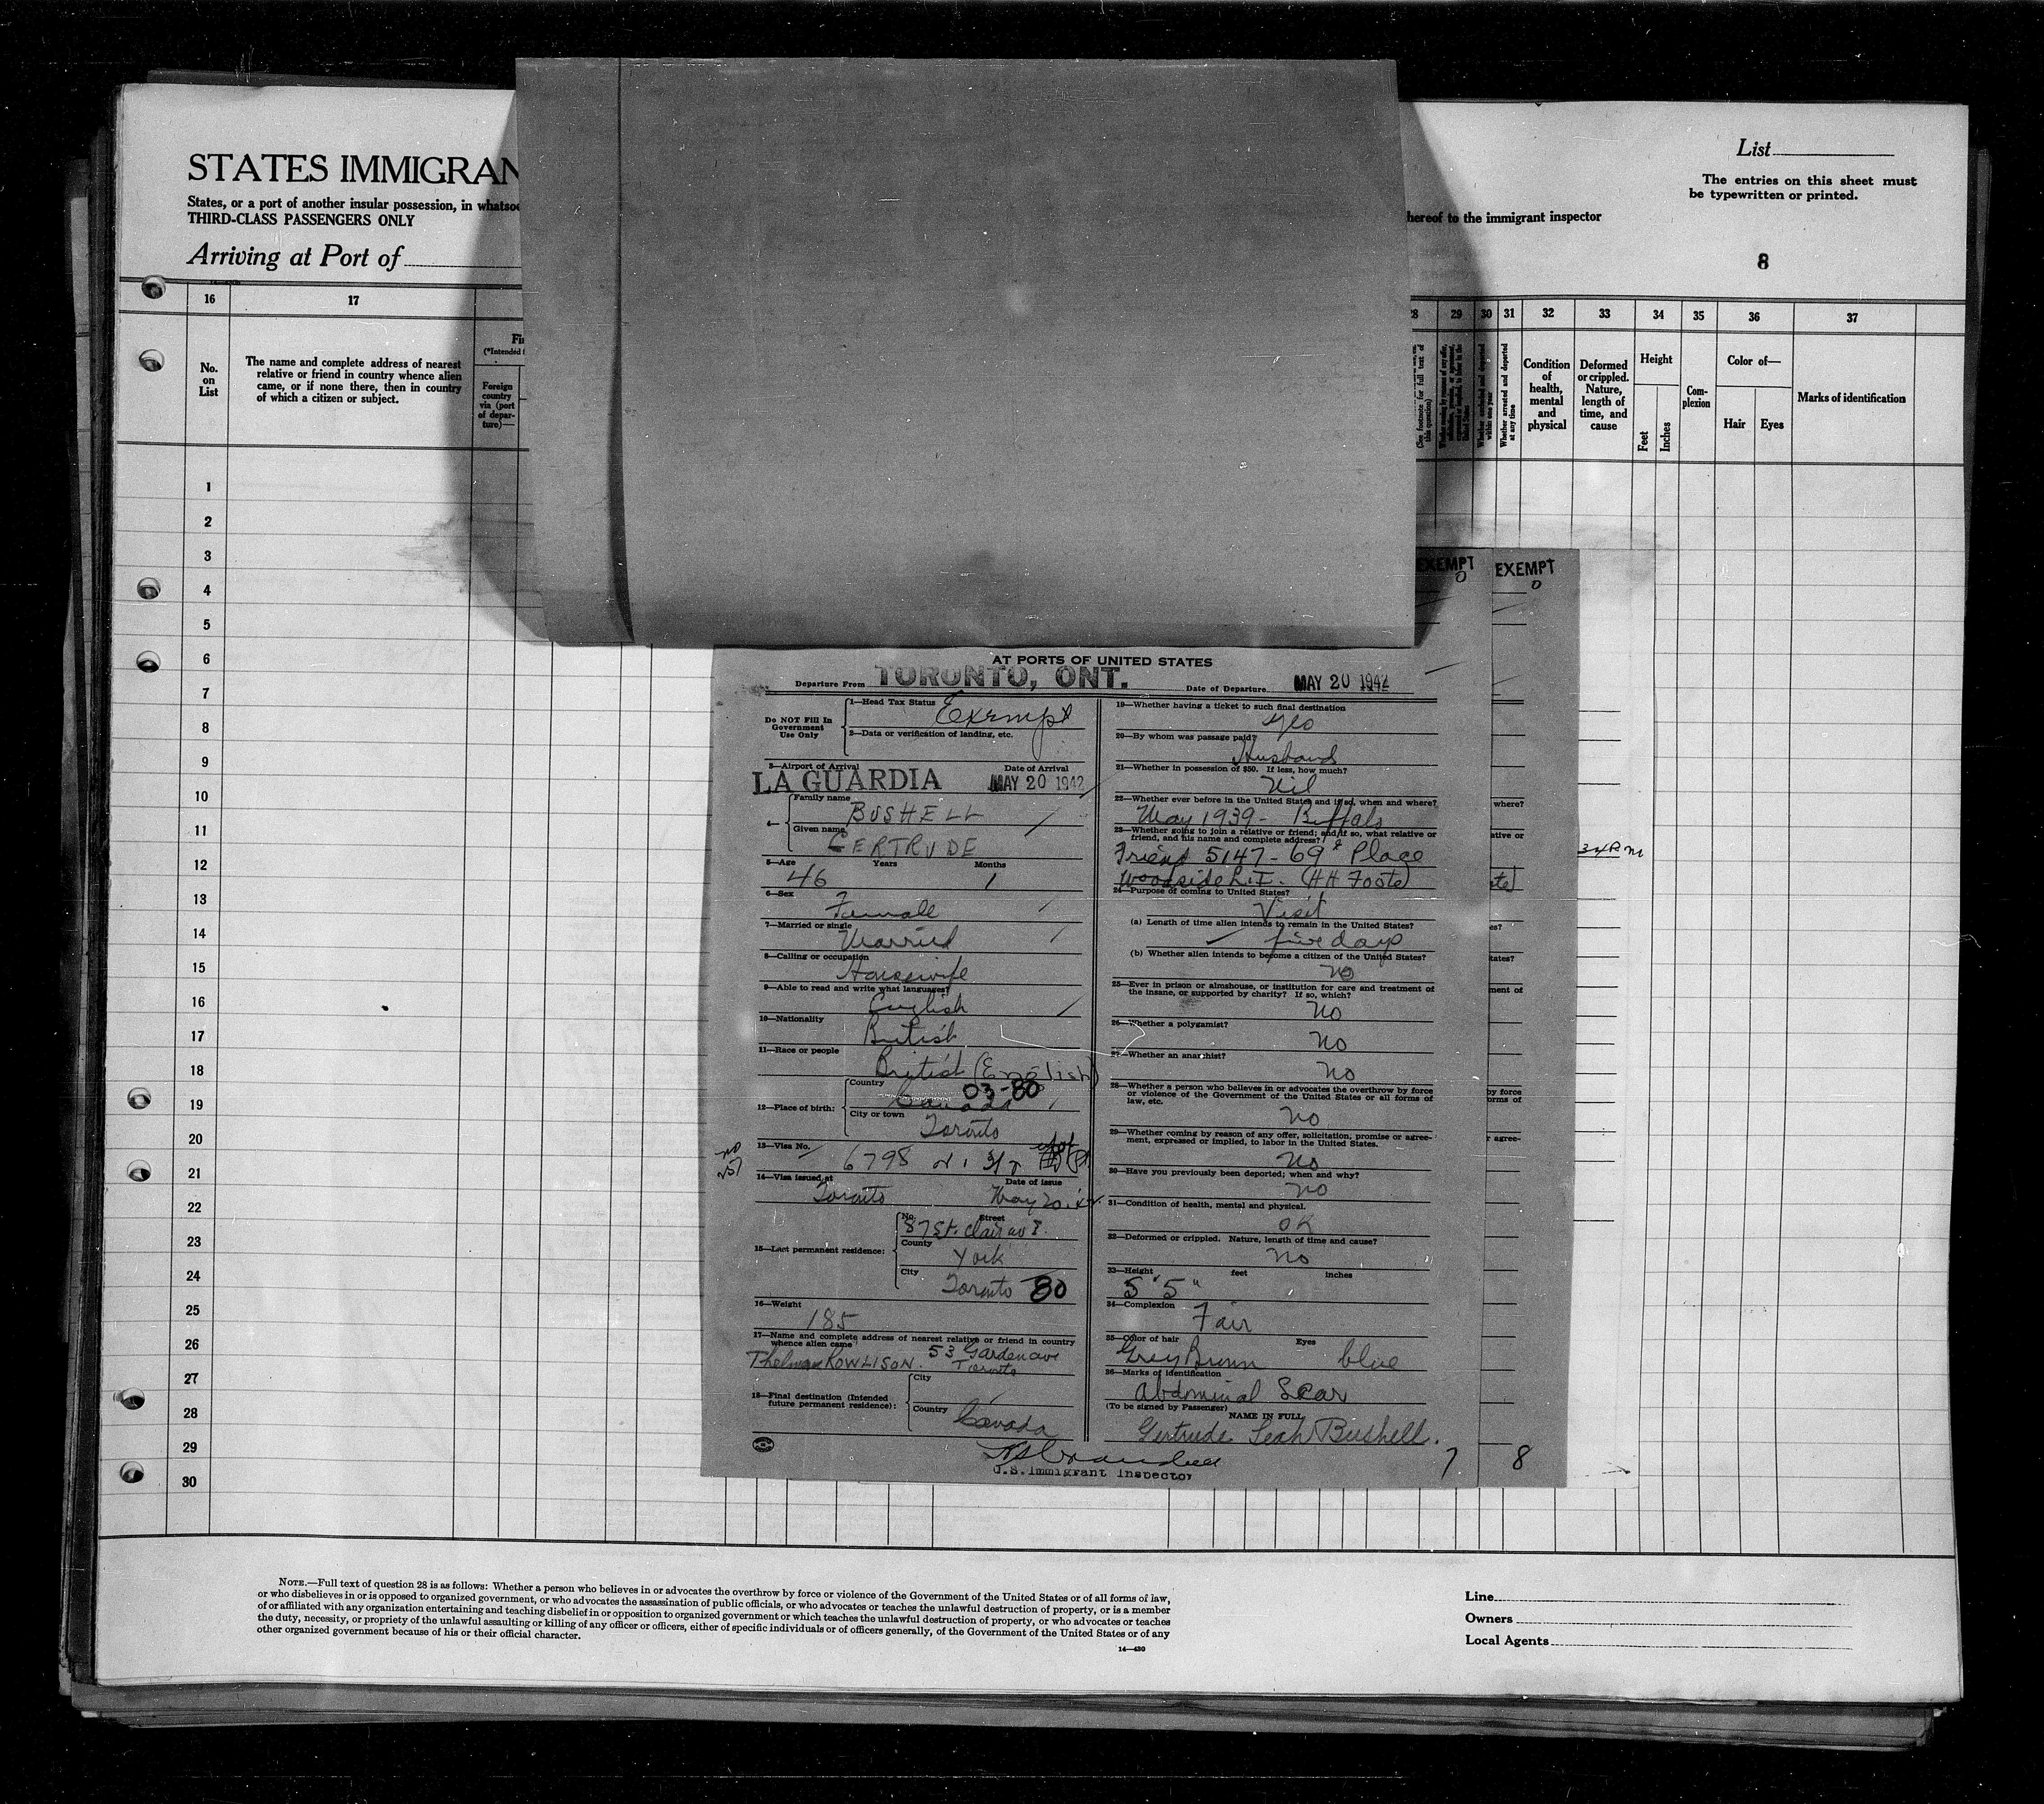 STATES IMMIGRAN
States, or a port of another insular possession, in whatsoe
hereof to the immigrant inspector
THIRD-CLASS PASSENGERS ONLY
Arriving at Port of
List
The entries on this sheet must
be typewritten or printed.
8
16 17 28 29 30 31 32 33 34 35 36 37
No. on List
The name and complete address of nearest
relative or friend in country whence alien
came, or if none there, then in country
of which a citizen or subject.
(*Intended
Foreign
country
via (port
of depar-
ture)—
(See footnote for full text of
this question)
Whether excluded and deported
within one year
Whether arrested and deported
at any time
Condition
of
health,
mental
and
physical
Deformed
or crippled.
Nature,
length of
time, and
cause
Height
Feet
Inches
Com-
plexion
Color of—
Hair Eyes
Marks of identification
1
2
3
4
5
6
7
8
9
10
11
12
13
14
15
16
17
18
19
20
21
22
23
24
25
26
27
28
29
30
EXEMPT
0
EXEMPT
0
AT PORTS OF UNITED STATES
Departure From TORONTO, ONT. Date of Departure MAY 20 1942
Do NOT Fill In
Government
Use Only
1—Head Tax Status Exempt
2—Data or verification of landing, etc.
3—Airport of Arrival Date of Arrival
LA GUARDIA MAY 20 1942
4—
Family name
BUSHELL
Given name
GERTRUDE
5—Age Years Months
46 1
6—Sex
Female
7—Married or single
Married
8—Calling or occupation
Housewife
9—Able to read and write what languages?
English
10—Nationality
British
11—Race or people
British (English)
03-80
12—Place of birth:
Country
Canada
City or town
Toronto
13—Visa No.
6798
14—Visa issued at Date of issue
Toronto May 20.42
15—Last permanent residence:
No. Street
87 St. Clair av E.
County
York
City
Toronto 80
16—Weight
185
17—Name and complete address of nearest relative or friend in country
whence alien came
53 Garden ave
Thelma ROWLISON. Toronto
18—Final destination (Intended
future permanent residence):
City
Country
Canada
U.S. Immigrant Inspector
19—Whether having a ticket to such final destination
yes
20—By whom was passage paid?
Husband
21—Whether in possession of $50. If less, how much?
Nil
22—Whether ever before in the United States and if so, when and where?
May 1939 - Buffalo
23—Whether going to join a relative or friend; and if so, what relative or
friend, and his name and complete address?
Friend 5147 - 69th Place
Woodside L.I. (HH Foote)
24—Purpose of coming to United States?
Visit
(a) Length of time alien intends to remain in the United States?
five days
(b) Whether alien intends to become a citizen of the United States?
no
25—Ever in prison or almshouse, or institution for care and treatment of
the insane, or supported by charity? If so, which?
no
26—Whether a polygamist?
no
27—Whether an anarchist?
no
28—Whether a person who believes in or advocates the overthrow by force
or violence of the Government of the United States or all forms of
law, etc.
no
29—Whether coming by reason of any offer, solicitation, promise or agree-
ment, expressed or implied, to labor in the United States.
no
30—Have you previously been deported; when and why?
no
31—Condition of health, mental and physical.
OK
32—Deformed or crippled. Nature, length of time and cause?
no
33—Height feet inches
5' 5"
34—Complexion
Fair
35—Color of hair Eyes
Grey Brown blue
36—Marks of identification
Abdominal Scar
(To be signed by Passenger)
NAME IN FULL
Gertrude Leah Bushell.
7
where?
ative or
ote)
es?
tates?
ment of
by force
orms of
r agree-
8
NOTE.—Full text of question 28 is as follows: Whether a person who believes in or advocates the overthrow by force or violence of the Government of the United States or of all forms of law,
or who disbelieves in or is opposed to organized government, or who advocates the assassination of public officials, or who advocates or teaches the unlawful destruction of property, or is a member
of or affiliated with any organization entertaining and teaching disbelief in or opposition to organized government or which teaches the unlawful destruction of property, or who advocates or teaches
the duty, necessity, or propriety of the unlawful assaulting or killing of any officer or officers, either of specific individuals or of officers generally, of the Government of the United States or of any
other organized government because of his or their official character.
14—430
Line
Owners
Local Agents